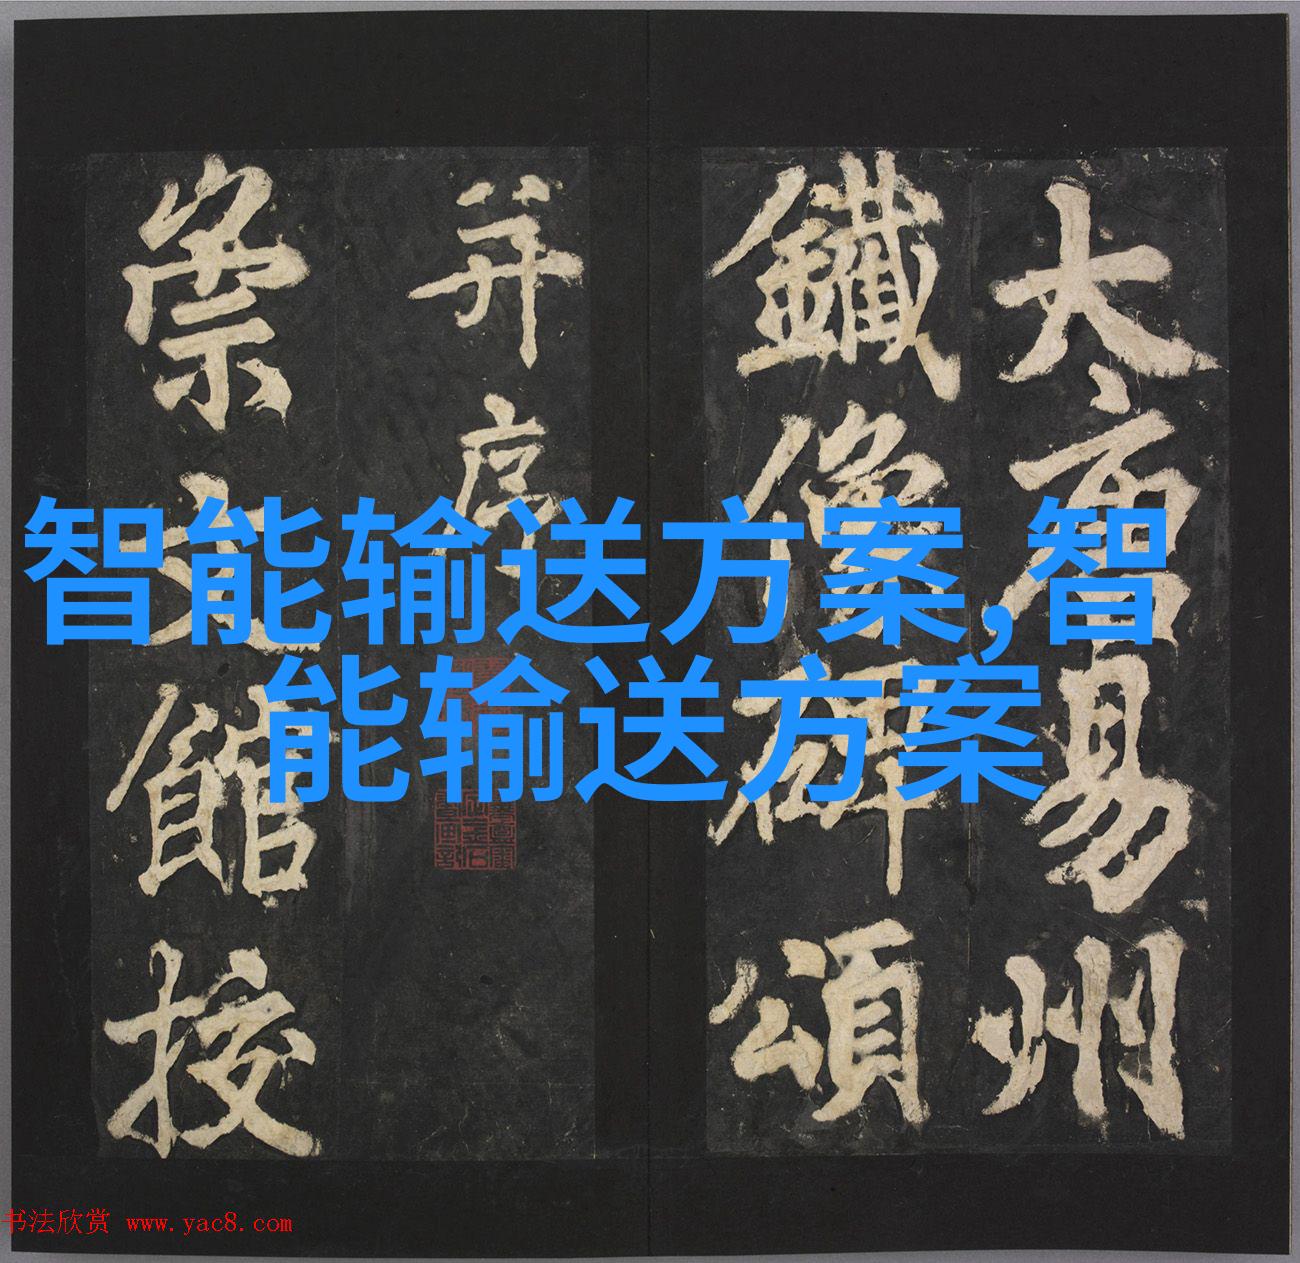 大唐易州
鐵像碑頌
并序
崇文館校
智能输送方案,智
能输送方案
书法欣赏 www.yac8.com